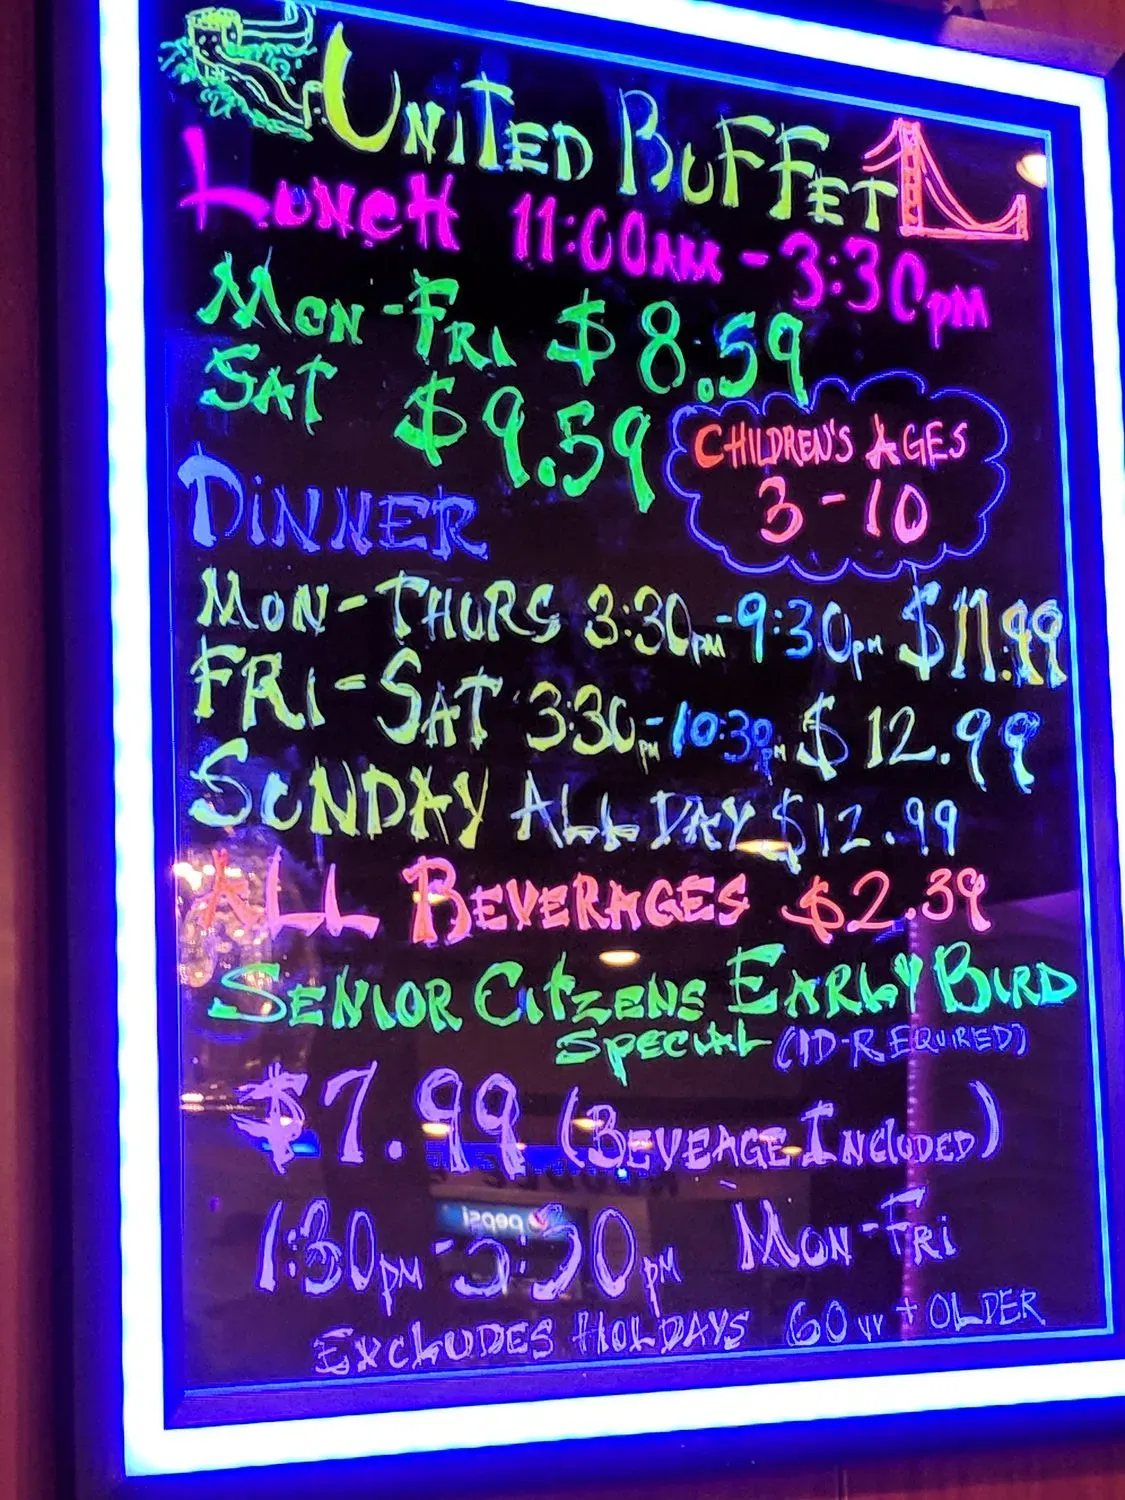 UNITED BUFFET
LUNCH 11:00AM - 3:30pm
MON - FRI $8.59
SAT $9.59
CHILDREN'S AGES
3 - 10
DINNER
MON - THURS 3:30pm - 9:30pm $11.99
FRI - SAT 3:30pm - 10:30pm $12.99
SUNDAY ALL DAY $12.99
ALL BEVERAGES $2.39
SENIOR CITZENS EARLY BIRD
SPECIAL (ID-REQUIRED)
$7.99 (BEVEAGE INCLUDED)
pepsi
1:30PM - 3:30PM MON - FRI
EXCLUDES HOLDAYS 60 + OLDER